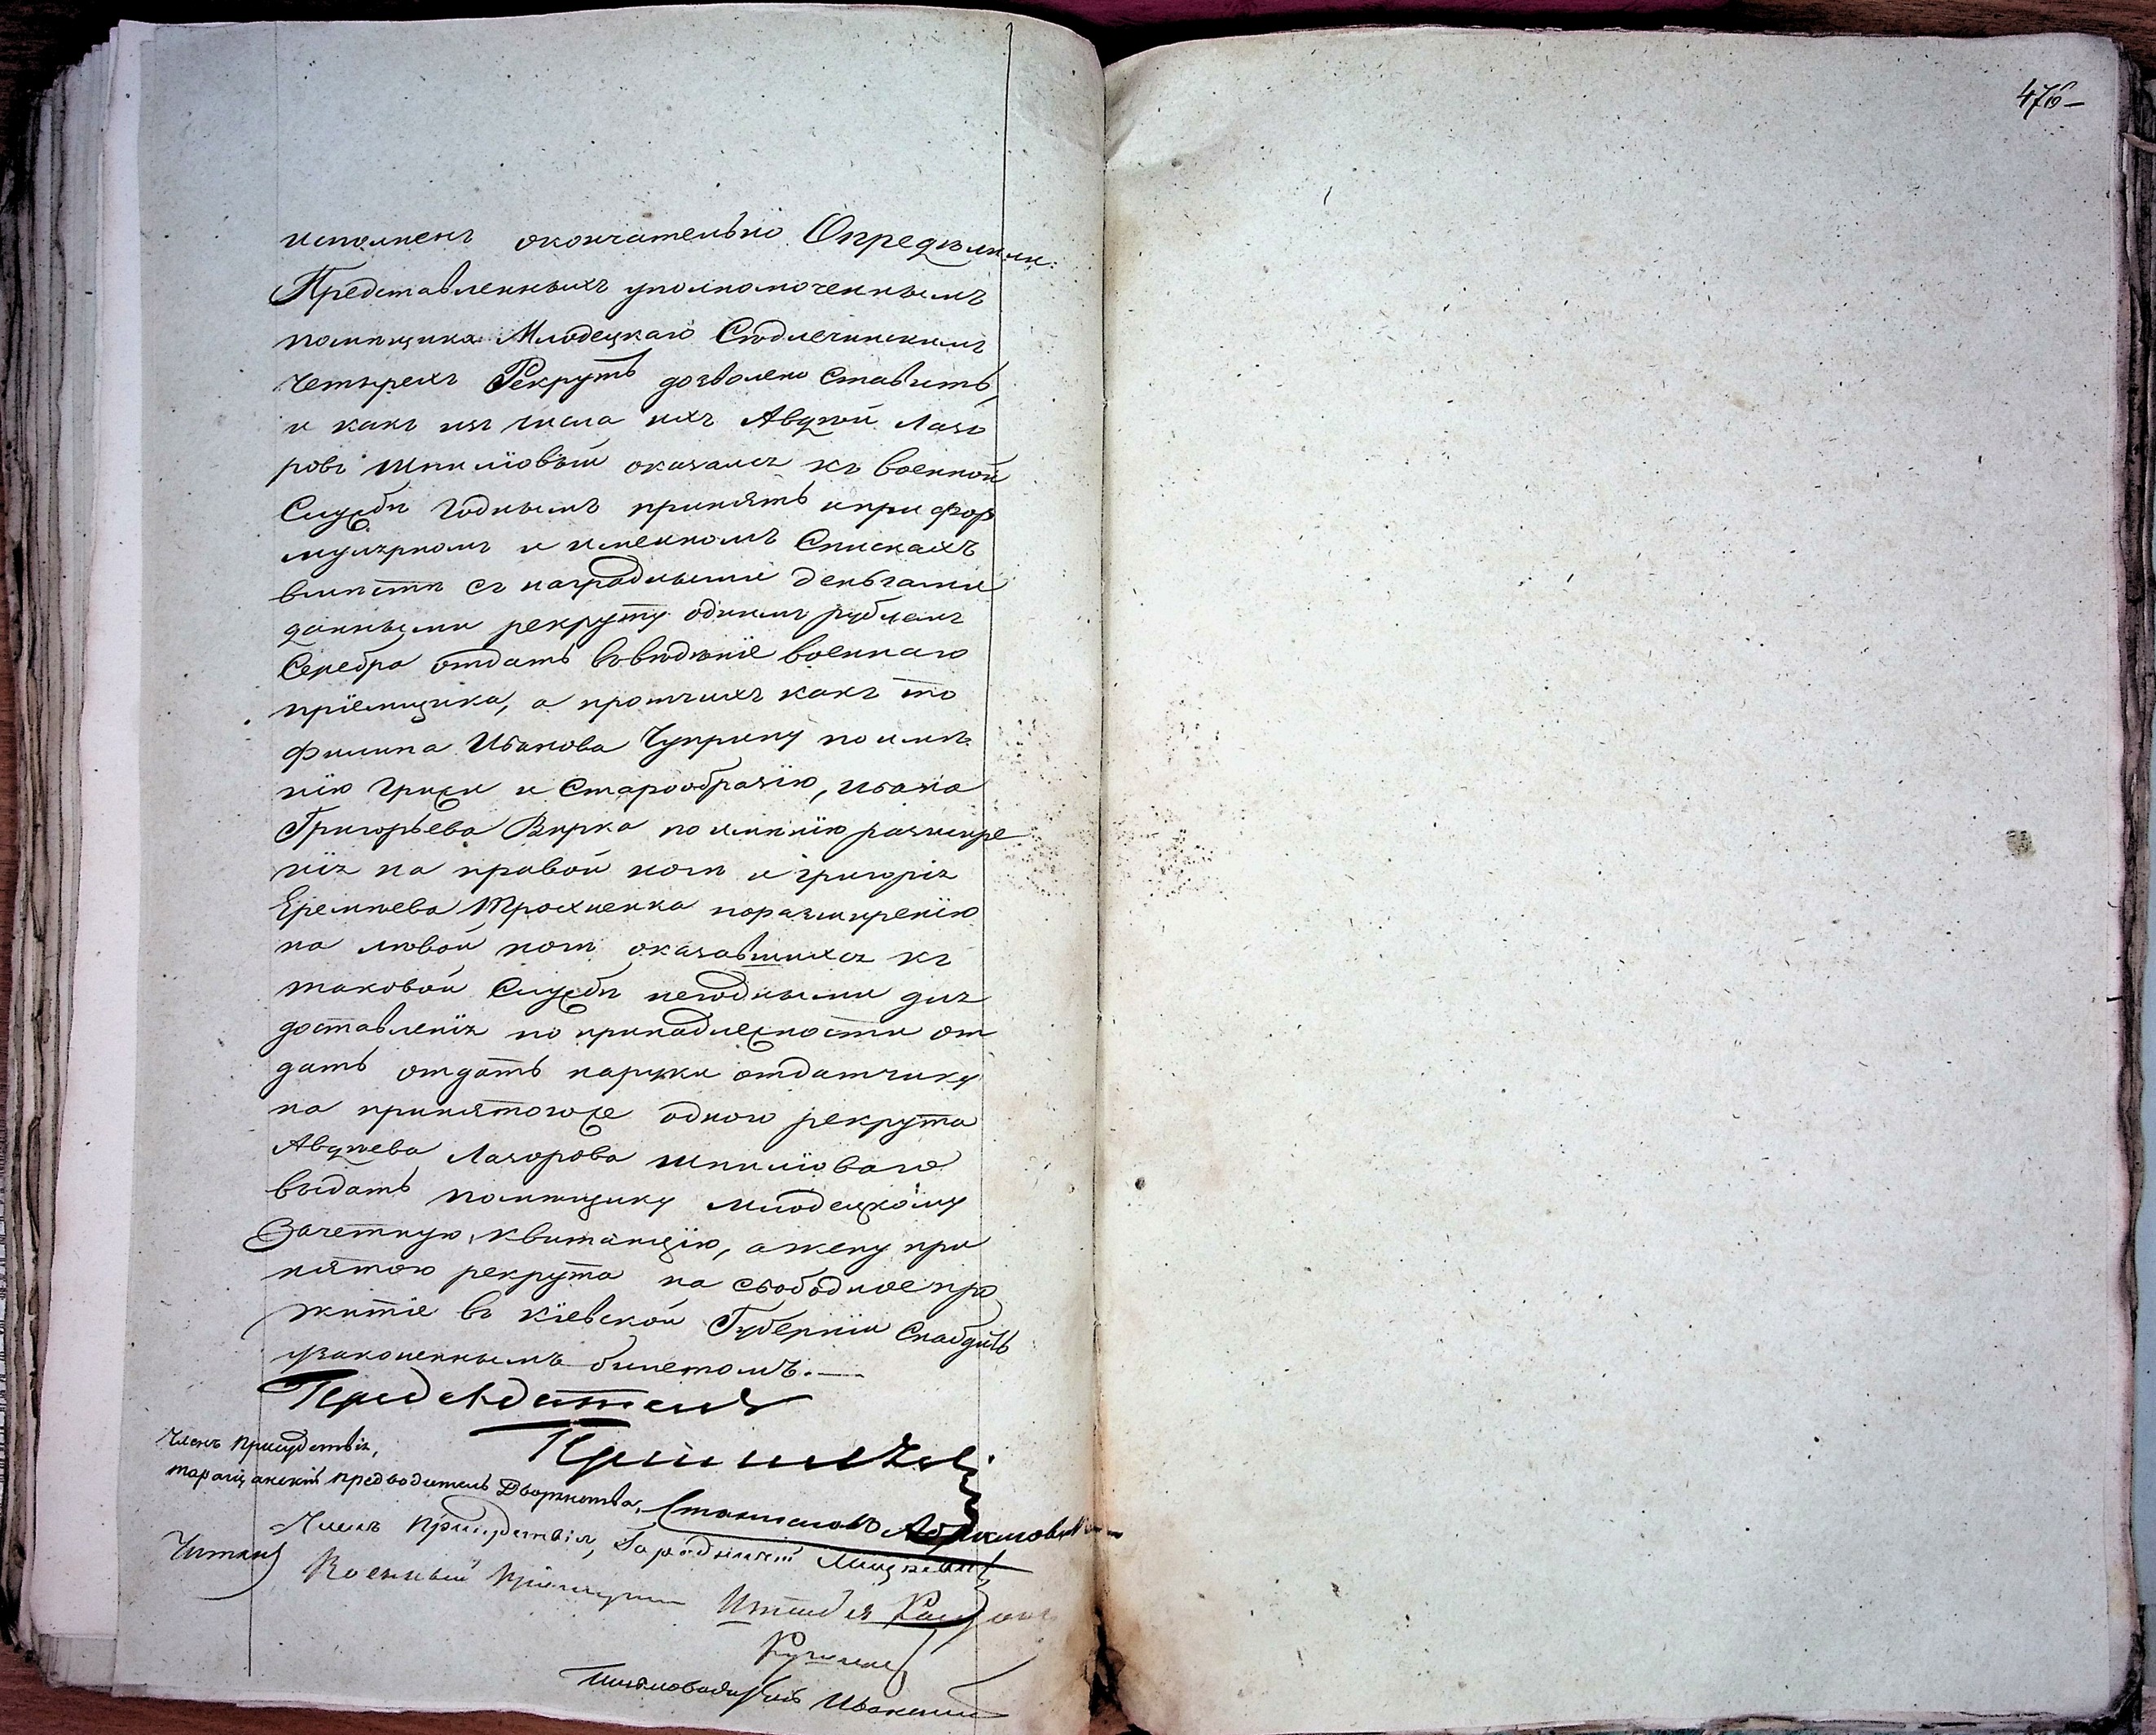 476
исполненъ окончательно Опредѣлили:
Представленныхъ уполномоченнымъ
помѣщика Млодецкаго Сѣдлечинскимъ
четырехъ Рекрутъ дозволено ставить,
и какъ изъ числа ихъ Авдѣй Лазо
ровъ Шпилiовый оказался къ военной
Службѣ годнымъ принять и при фор
мулярномъ и именномъ Спискахъ
вмѣстѣ съ наградными деньгами
данными рекруту однимъ рублемъ
Серебра отдать въ вѣдѣніе военнаго
пріемщика, а протчихъ какъ то
Филипа Иванова Чуприну по имѣ
нію грыжи и Старообразію, Ивана
Григорьева Вирка по имѣнію разшире
нія на правой ногѣ и Григорія
Еремѣева Трохиенка по разширенію
на лѣвой ногѣ оказавшихся къ
таковой Службѣ негодными для
доставленія по принадлежности от
дать отдать паружи отдатчику
на принятогоже одного рекрута
Авдѣева Лазорова Шпилiоваго
выдать помѣщику Млодецкому
Зачетную квитанцію, а жену при
нятого рекрута на свободное про
житіе въ Кіевской Губерніи Снабдить
узаконеннымъ билетомъ.—
Предсѣдатель
Членъ Присудствія,
таращанскій предводитель Дворянства, Станиславъ
Членъ Присудствія, Городничій
Читалъ Военный Пріемщикъ Штабсъ
Письмоводитель